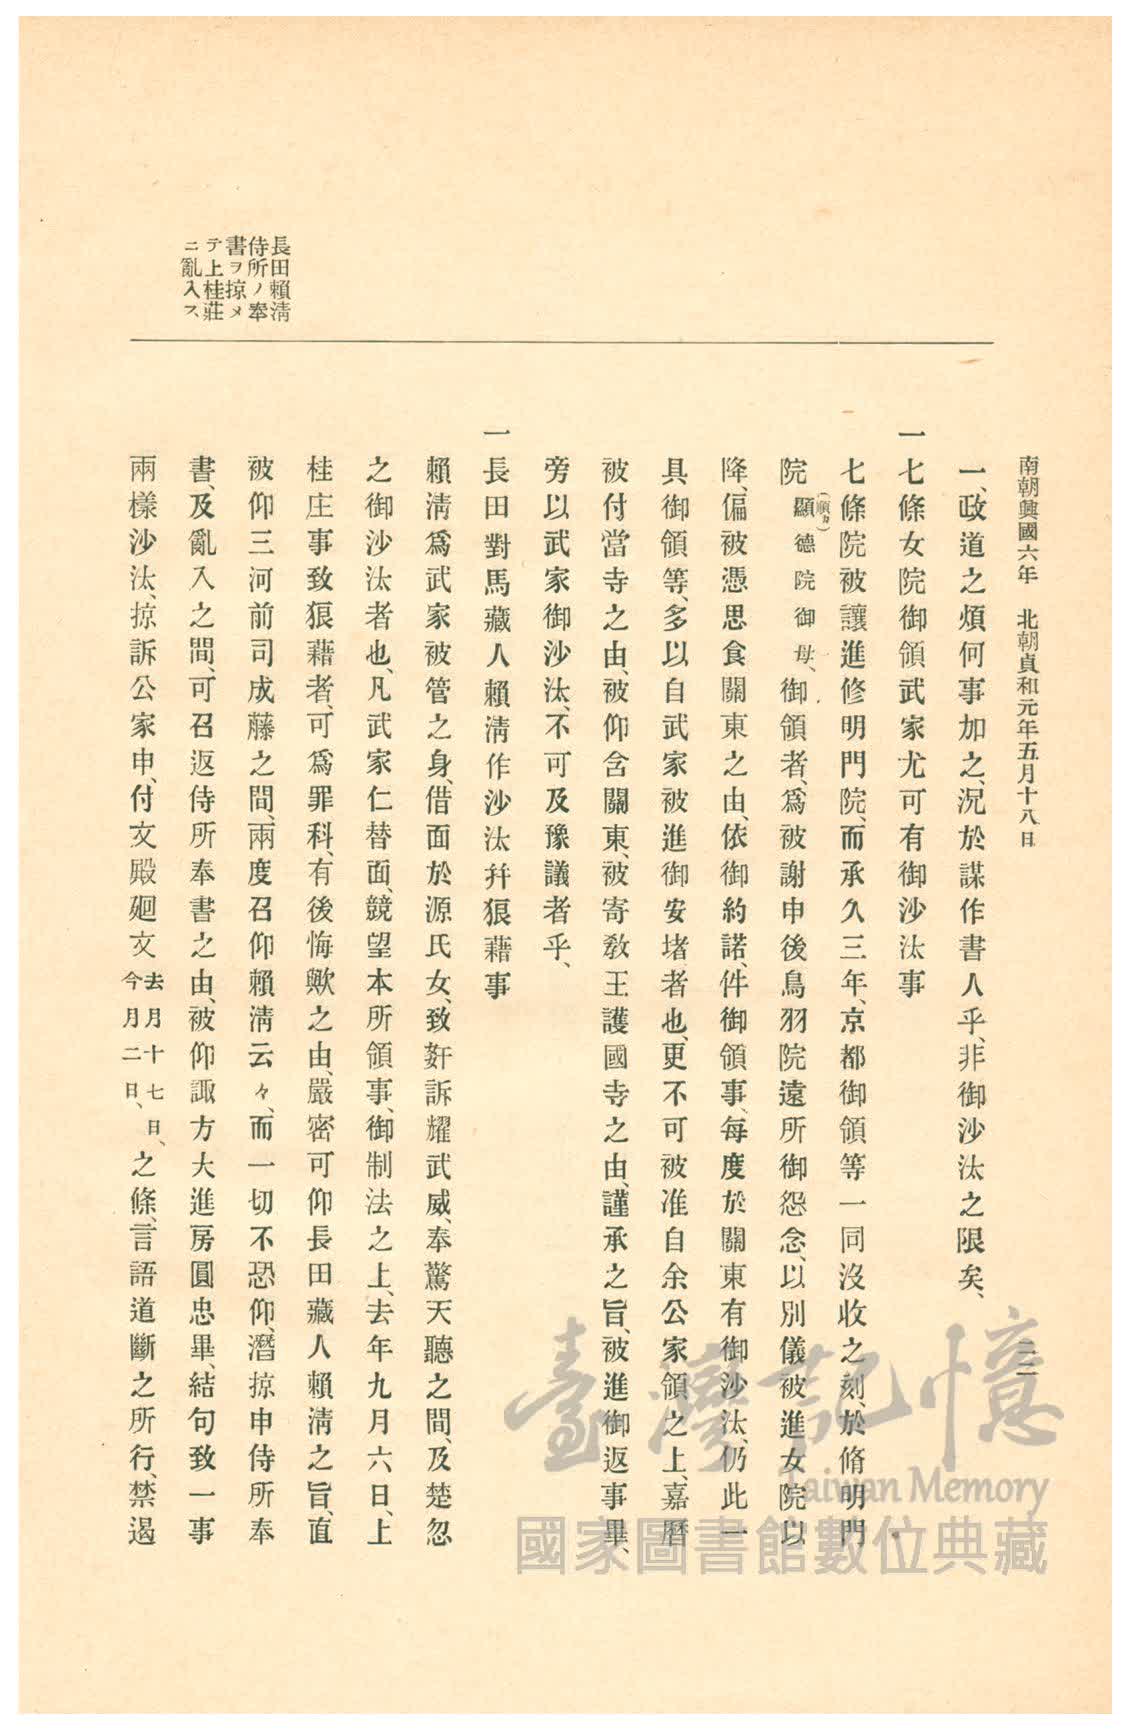 南朝興國六年　北朝貞和元年五月十八日
二二
一、政道之煩何事加之、況於謀作書人乎、非御沙汰之限矣、
一七條女院御領武家尤可有御沙汰事
七條院被讓進修明門院、而承久三年、京都御領等一同沒收之刻、於脩明門
院顯(順カ)德院御母、御領者、爲被謝申後鳥羽院遠所御怨念、以別儀被進女院以
降、偏被憑思食關東之由、依御約諾、件御領事、每度於關東有御沙汰、仍此一
具御領等、多以自武家被進御安堵者也、更不可被准自余公家領之上、嘉曆
被付當寺之由、被仰含關東、被寄敎王護國寺之由、謹承之旨、被進御返事畢、
旁以武家御沙汰、不可及豫議者乎、
一長田對馬藏人賴淸作沙汰幷狼藉事
賴淸爲武家被管之身、借面於源氏女、致姧訴耀武威、奉驚天聽之間、及楚忽
之御沙汰者也、凡武家仁替面、競望本所領事、御制法之上、去年九月六日、上
桂庄事致狼藉者、可爲罪科、有後悔歟之由、嚴密可仰長田藏人賴淸之旨、直
被仰三河前司成藤之間、兩度召仰賴淸云々、而一切不恐仰、潛掠申侍所奉
書、及亂入之間、可召返侍所奉書之由、被仰諏方大進房圓忠畢、結句致一事
兩樣沙汰、掠訴公家申、付文殿廻文去月十七日、今月二日、之條、言語道斷之所行、禁遏
長田賴淸
侍所ノ奉
書ヲ掠メ
テ上桂莊
ニ亂入ス
臺灣記憶
Taiwan Memory
國家圖書館數位典藏